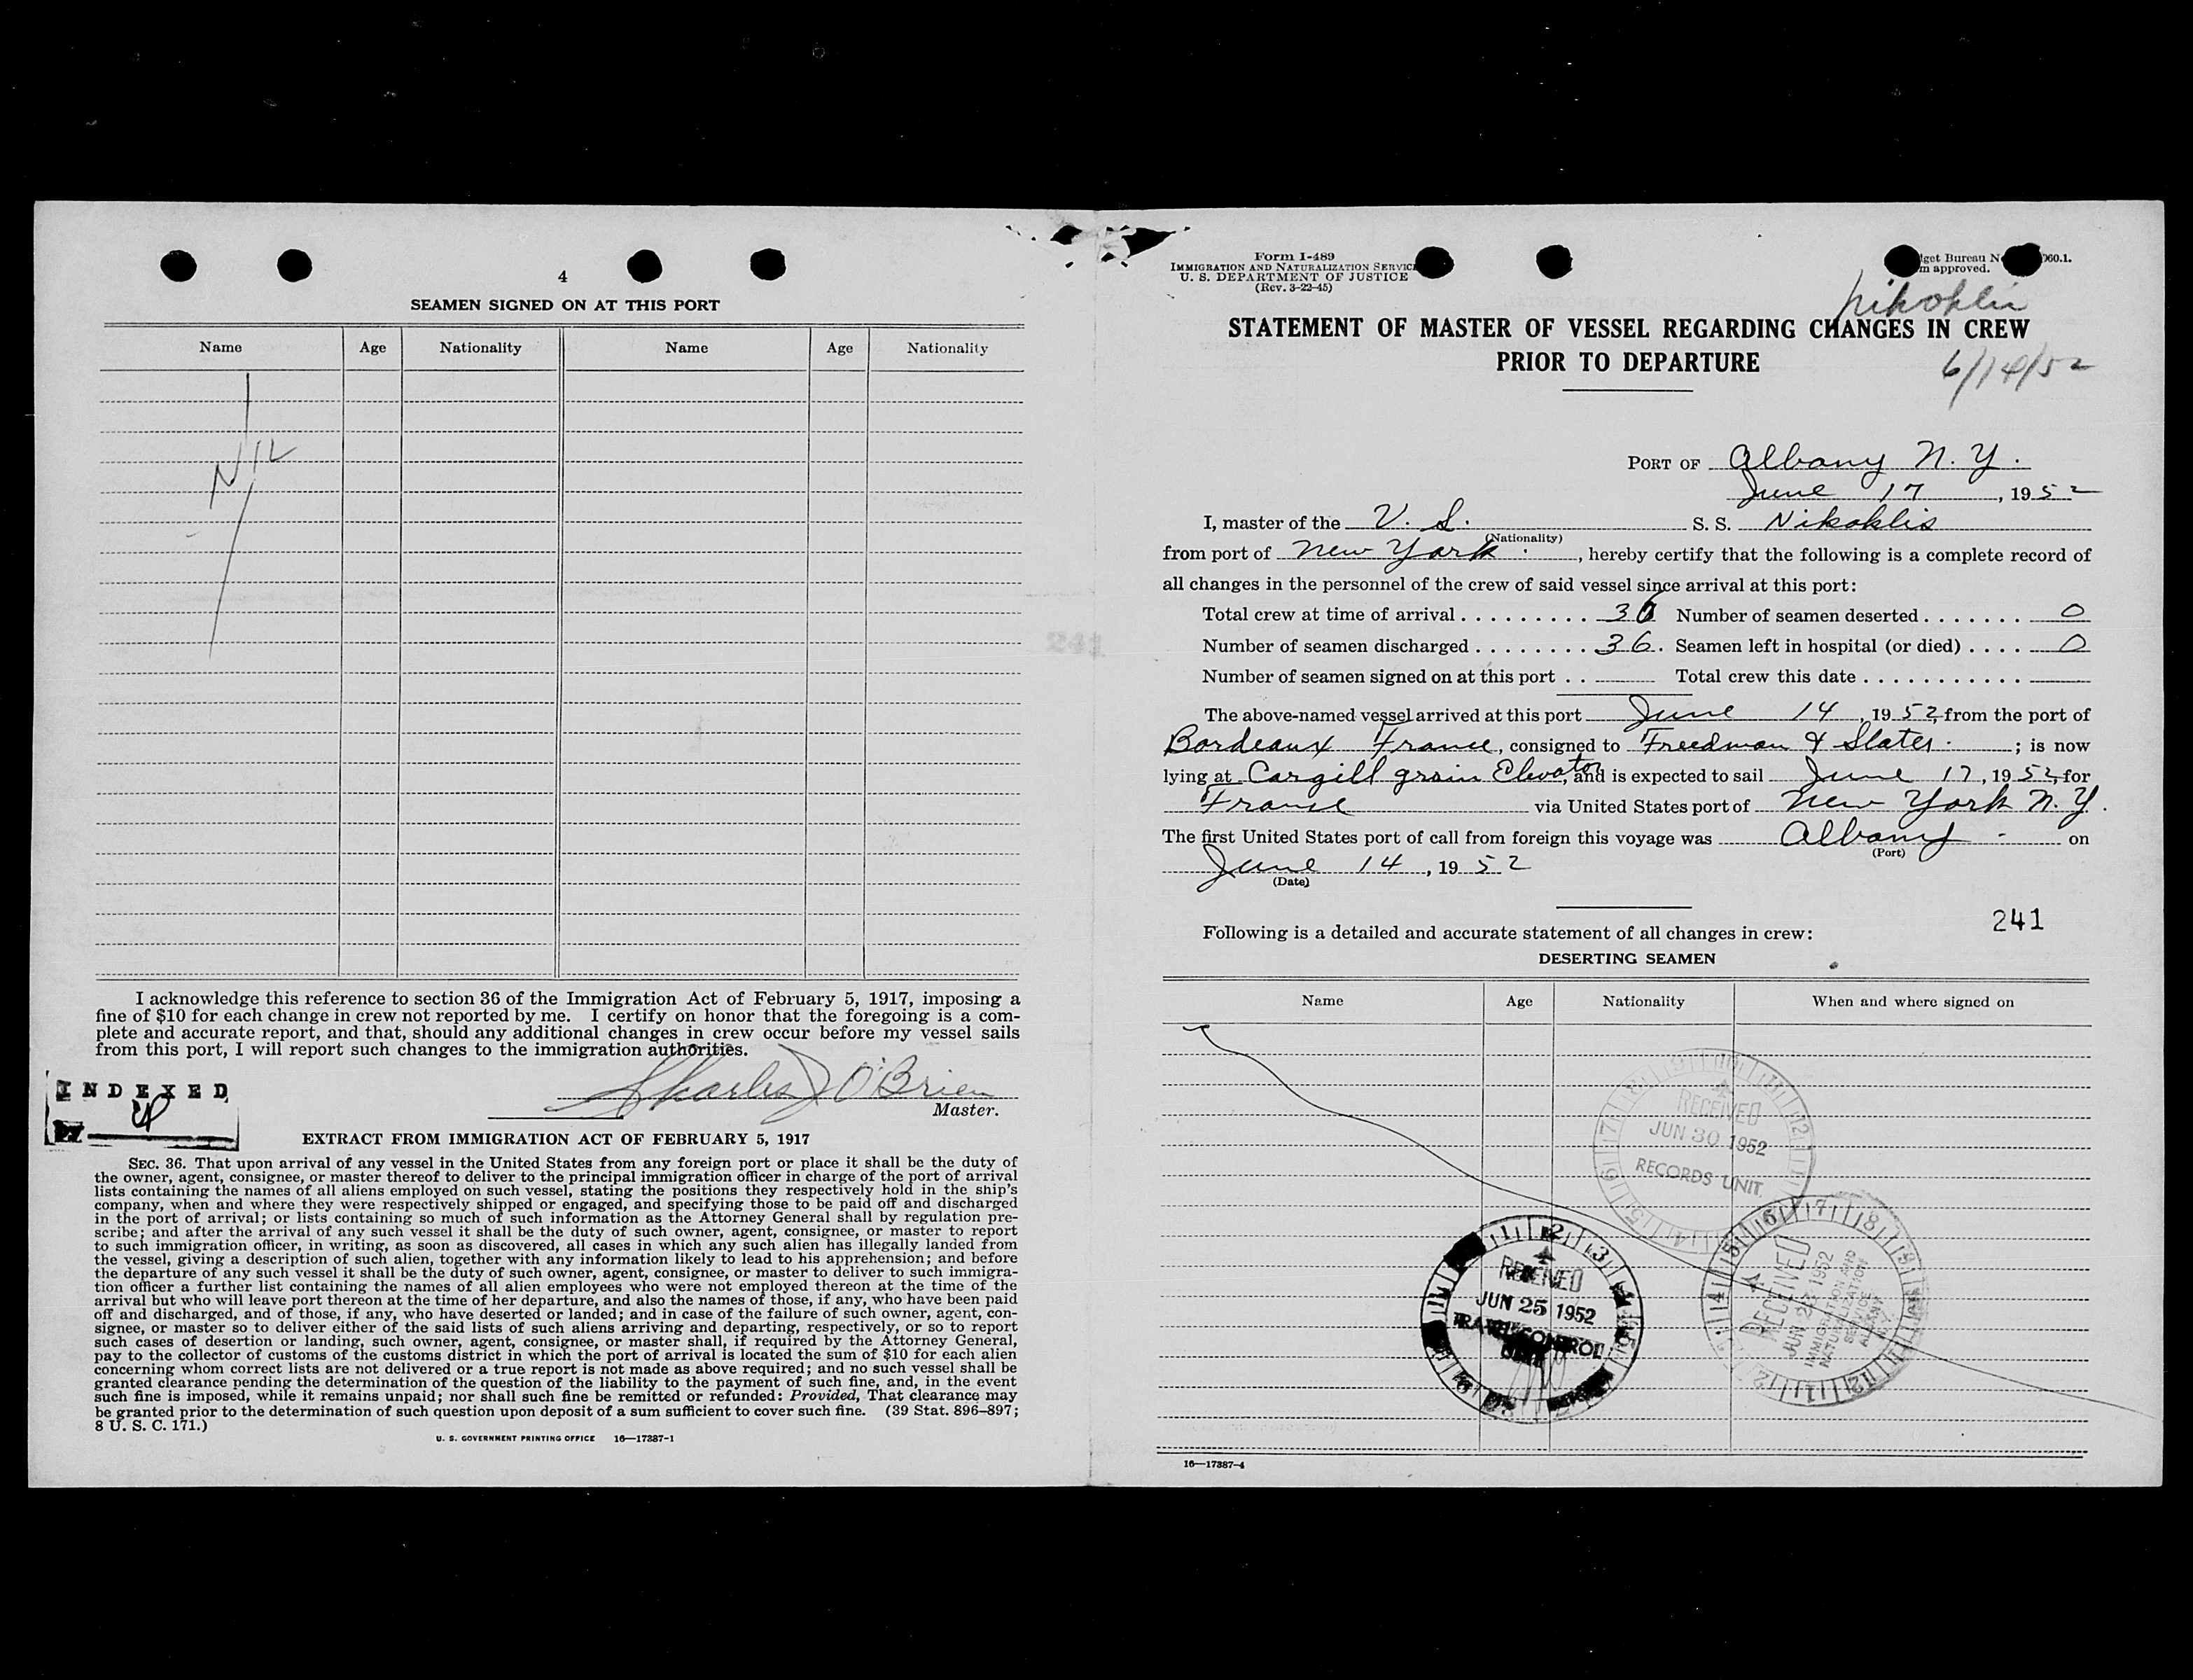 4
SEAMEN SIGNED ON AT THIS PORT
Name Age Nationality Name Age Nationality
Nil
I acknowledge this reference to section 36 of the Immigration Act of February 5, 1917, imposing a
fine of $10 for each change in crew not reported by me. I certify on honor that the foregoing is a com-
plete and accurate report, and that, should any additional changes in crew occur before my vessel sails
from this port, I will report such changes to the immigration authorities.
INDEXED
BY
Charles J O'Brien
Master.
EXTRACT FROM IMMIGRATION ACT OF FEBRUARY 5, 1917
SEC. 36. That upon arrival of any vessel in the United States from any foreign port or place it shall be the duty of
the owner, agent, consignee, or master thereof to deliver to the principal immigration officer in charge of the port of arrival
lists containing the names of all aliens employed on such vessel, stating the positions they respectively hold in the ship's
company, when and where they were respectively shipped or engaged, and specifying those to be paid off and discharged
in the port of arrival; or lists containing so much of such information as the Attorney General shall by regulation pre-
scribe; and after the arrival of any such vessel it shall be the duty of such owner, agent, consignee, or master to report
to such immigration officer, in writing, as soon as discovered, all cases in which any such alien has illegally landed from
the vessel, giving a description of such alien, together with any information likely to lead to his apprehension; and before
the departure of any such vessel it shall be the duty of such owner, agent, consignee, or master to deliver to such immigra-
tion officer a further list containing the names of all alien employees who were not employed thereon at the time of the
arrival but who will leave port thereon at the time of her departure, and also the names of those, if any, who have been paid
off and discharged, and of those, if any, who have deserted or landed; and in case of the failure of such owner, agent, con-
signee, or master so to deliver either of the said lists of such aliens arriving and departing, respectively, or so to report
such cases of desertion or landing, such owner, agent, consignee, or master shall, if required by the Attorney General,
pay to the collector of customs of the customs district in which the port of arrival is located the sum of $10 for each alien
concerning whom correct lists are not delivered or a true report is not made as above required; and no such vessel shall be
granted clearance pending the determination of the question of the liability to the payment of such fine, and, in the event
such fine is imposed, while it remains unpaid; nor shall such fine be remitted or refunded: Provided, That clearance may
be granted prior to the determination of such question upon deposit of a sum sufficient to cover such fine. (39 Stat. 896–897;
8 U. S. C. 171.)
U. S. GOVERNMENT PRINTING OFFICE 16—17387-1
Form I-489
IMMIGRATION AND NATURALIZATION SERVICE
U. S. DEPARTMENT OF JUSTICE
(Rev. 3-22-45)
Bureau
approved.
STATEMENT OF MASTER OF VESSEL REGARDING CHANGES IN CREW
PRIOR TO DEPARTURE
6/14/52
PORT OF Albany N. Y.
June 17, 1952
I, master of the U. S. S. S. Nikoklis
(Nationality)
from port of New York, hereby certify that the following is a complete record of
all changes in the personnel of the crew of said vessel since arrival at this port:
Total crew at time of arrival 36 Number of seamen deserted 0
Number of seamen discharged 36. Seamen left in hospital (or died) 0
Number of seamen signed on at this port Total crew this date
The above-named vessel arrived at this port June 14, 1952, from the port of
Bordeaux France, consigned to Freedman & Slater; is now
lying at Cargill grain Elevator, and is expected to sail June 17, 1952, for
France via United States port of New York N. Y.
The first United States port of call from foreign this voyage was Albany on
(Port)
June 14, 1952
(Date)
241
Following is a detailed and accurate statement of all changes in crew:
DESERTING SEAMEN
Name Age Nationality When and where signed on
RECEIVED
JUN 30 1952
RECORDS UNIT
RECEIVED
JUN 25 1952
TRAVEL CONTROL
UNIT
RECEIVED
JUN 23 1952
IMMIGRATION AND
NATURALIZATION
SERVICE
ALBANY
N.Y.
16—17387-4